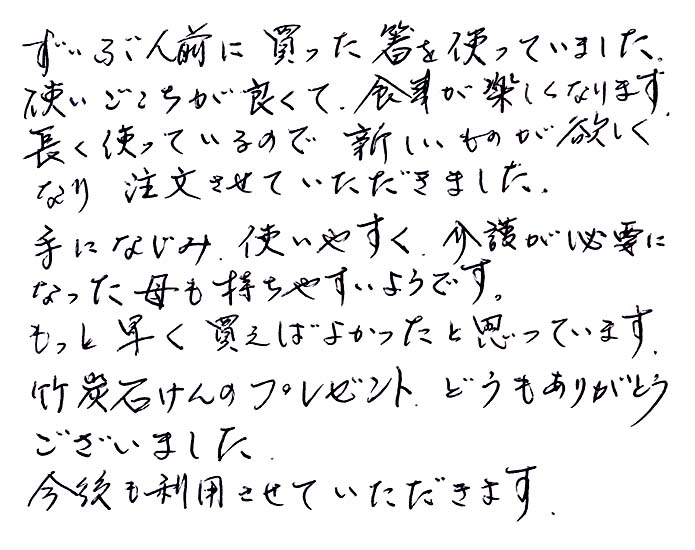 ずいぶん前に買った箸を使っていました。
使いごこちが良くて、食事が楽しくなります。
長く使っているので新しいものが欲しく
なり注文させていただきました。
手になじみ、使いやすく、介護が必要に
なった母も持ちやすいようです。
もっと早く買えばよかったと思っています。
竹炭石けんのプレゼント、どうもありがとう
ございました。
今後も利用させていただきます。